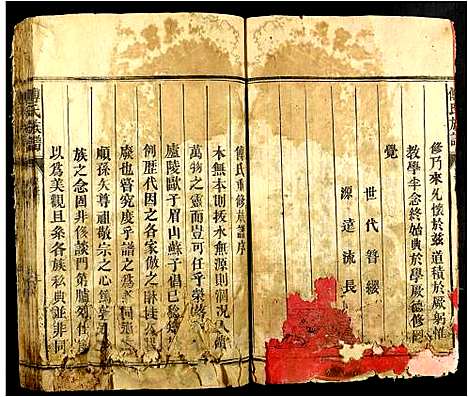 傅氏族譜
修乃來允懷於茲道積於厥躬惟
教學半念終始典於學厥德修罔
覺
世代簪纓
源遠流長
傅氏重修族譜序
木無本則拔水無源則涸况人領
萬物之靈而豈可任乎
廬陵歐子眉山蘇子倡已
例歷代因之各家倣之
廢也嘗究度乎譜之為
順孫以尊祖敬宗之心為
族之念固非修談門第臚列
以為美觀且叅各族私典並非同
傅氏族譜